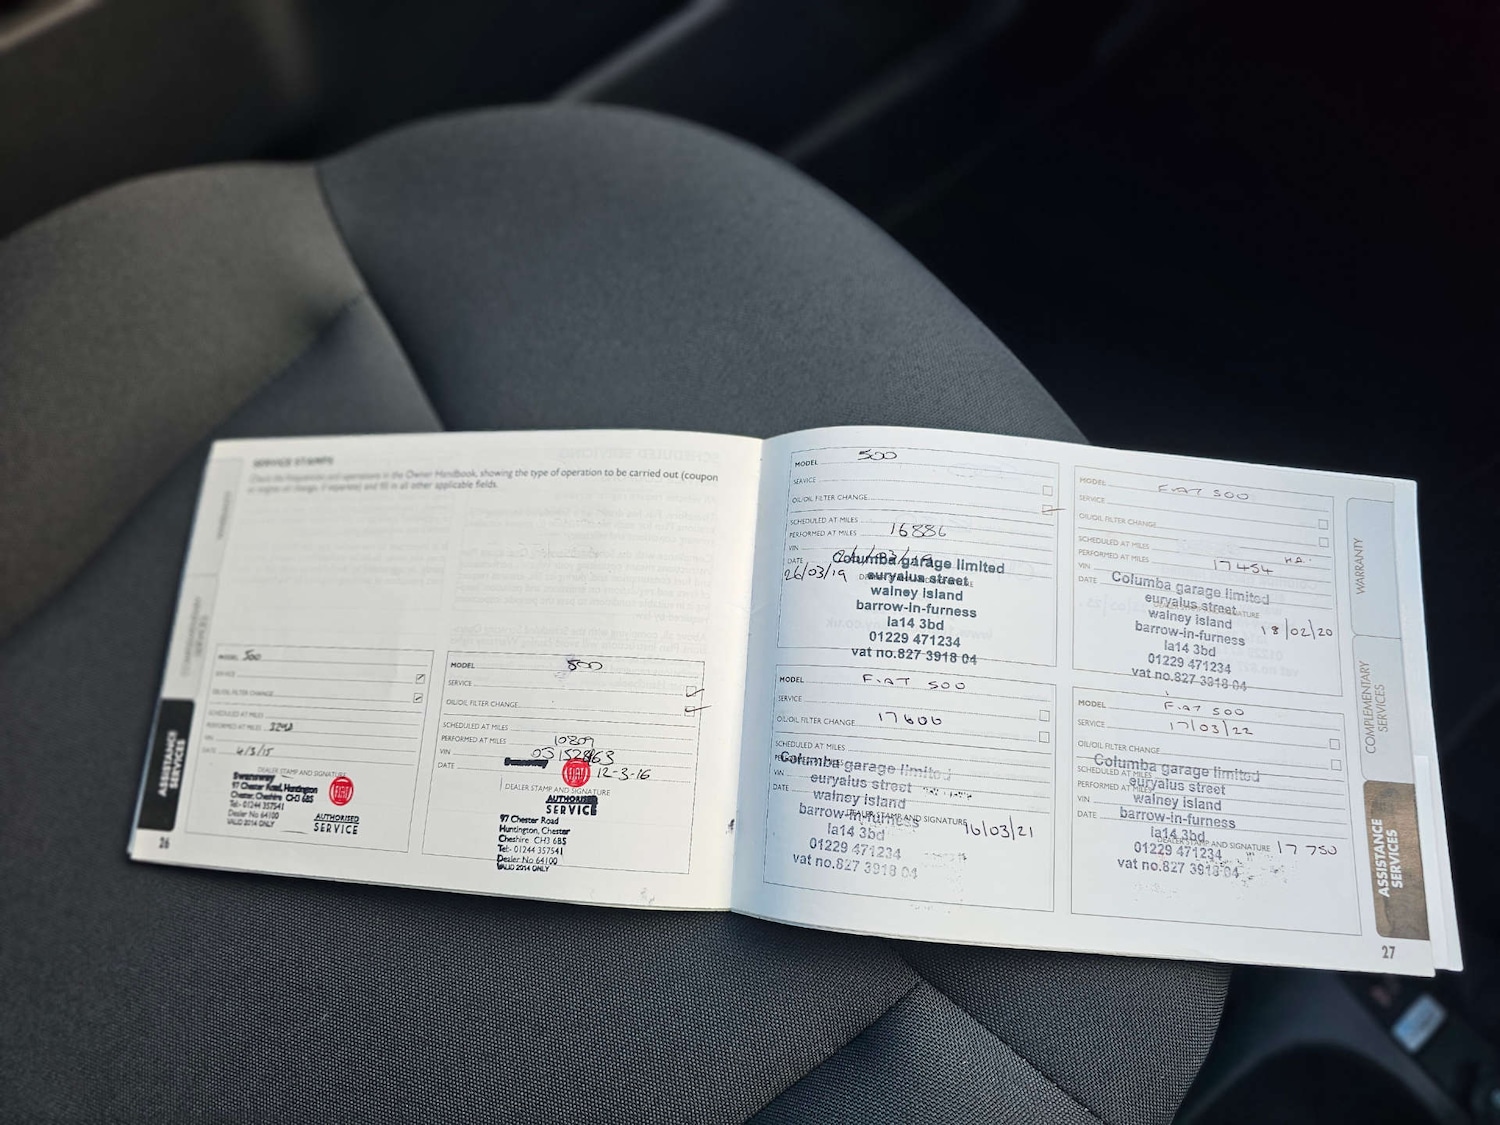 SERVICE STAMPS
operations in the Owner Handbook, showing the type of operation to be carried out (coupon
and fill in all other applicable fields.
MODEL 500
SERVICE
OIL/OIL FILTER CHANGE
SCHEDULED AT MILES
PERFORMED AT MILES
VIN
DATE 4/3/15
DEALER STAMP AND SIGNATURE
Swansway
97 Chester Road, Huntington
Chester, Cheshire CH3 6BS
Tel:- 01244 357541
Dealer No 64100
VALID 2014 ONLY
FIAT
AUTHORISED
SERVICE
ASSISTANCE
SERVICES
26
MODEL 500
SERVICE
OIL/OIL FILTER CHANGE
SCHEDULED AT MILES
PERFORMED AT MILES 10809
VIN
DATE 12-3-16
Swansway
FIAT
DEALER STAMP AND SIGNATURE
AUTHORISED
SERVICE
97 Chester Road
Huntington, Chester
Cheshire CH3 6BS
Tel:- 01244 357541
Dealer No 64100
VALID 2014 ONLY
MODEL 500
SERVICE
OIL/OIL FILTER CHANGE
SCHEDULED AT MILES
PERFORMED AT MILES 16886
VIN
DATE
26/03/19
Columba garage limited
euryalus street
walney island
barrow-in-furness
la14 3bd
01229 471234
vat no.827 3918 04
MODEL FIAT 500
SERVICE
OIL/OIL FILTER CHANGE
SCHEDULED AT MILES
PERFORMED AT MILES 17454
VIN
DATE
Columba garage limited
euryalus street
walney island
barrow-in-furness
la14 3bd
01229 471234
vat no.827 3918 04
18/02/20
MODEL FIAT 500
SERVICE
OIL/OIL FILTER CHANGE 17606
SCHEDULED AT MILES
VIN
DATE
Columba garage limited
euryalus street
walney island
barrow-in-furness
la14 3bd
01229 471234
vat no.827 3918 04
STAMP AND SIGNATURE
16/03/21
MODEL FIAT 500
SERVICE 17/03/22
OIL/OIL FILTER CHANGE
SCHEDULED AT MILES
PERFORMED AT MILES
VIN
DATE
Columba garage limited
euryalus street
walney island
barrow-in-furness
la14 3bd
01229 471234
vat no.827 3918 04
DEALER STAMP AND SIGNATURE 17 750
WARRANTY
COMPLEMENTARY
SERVICES
ASSISTANCE
SERVICES
27